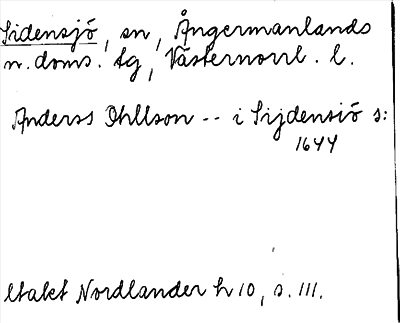 Sidensjö, sn, Ångermanlands
n. doms. tg, Västernorrl. l.
Anderss Ohllson -- i Sijdensiö s:
1644
Utakt Nordlander h 10, s. 111.